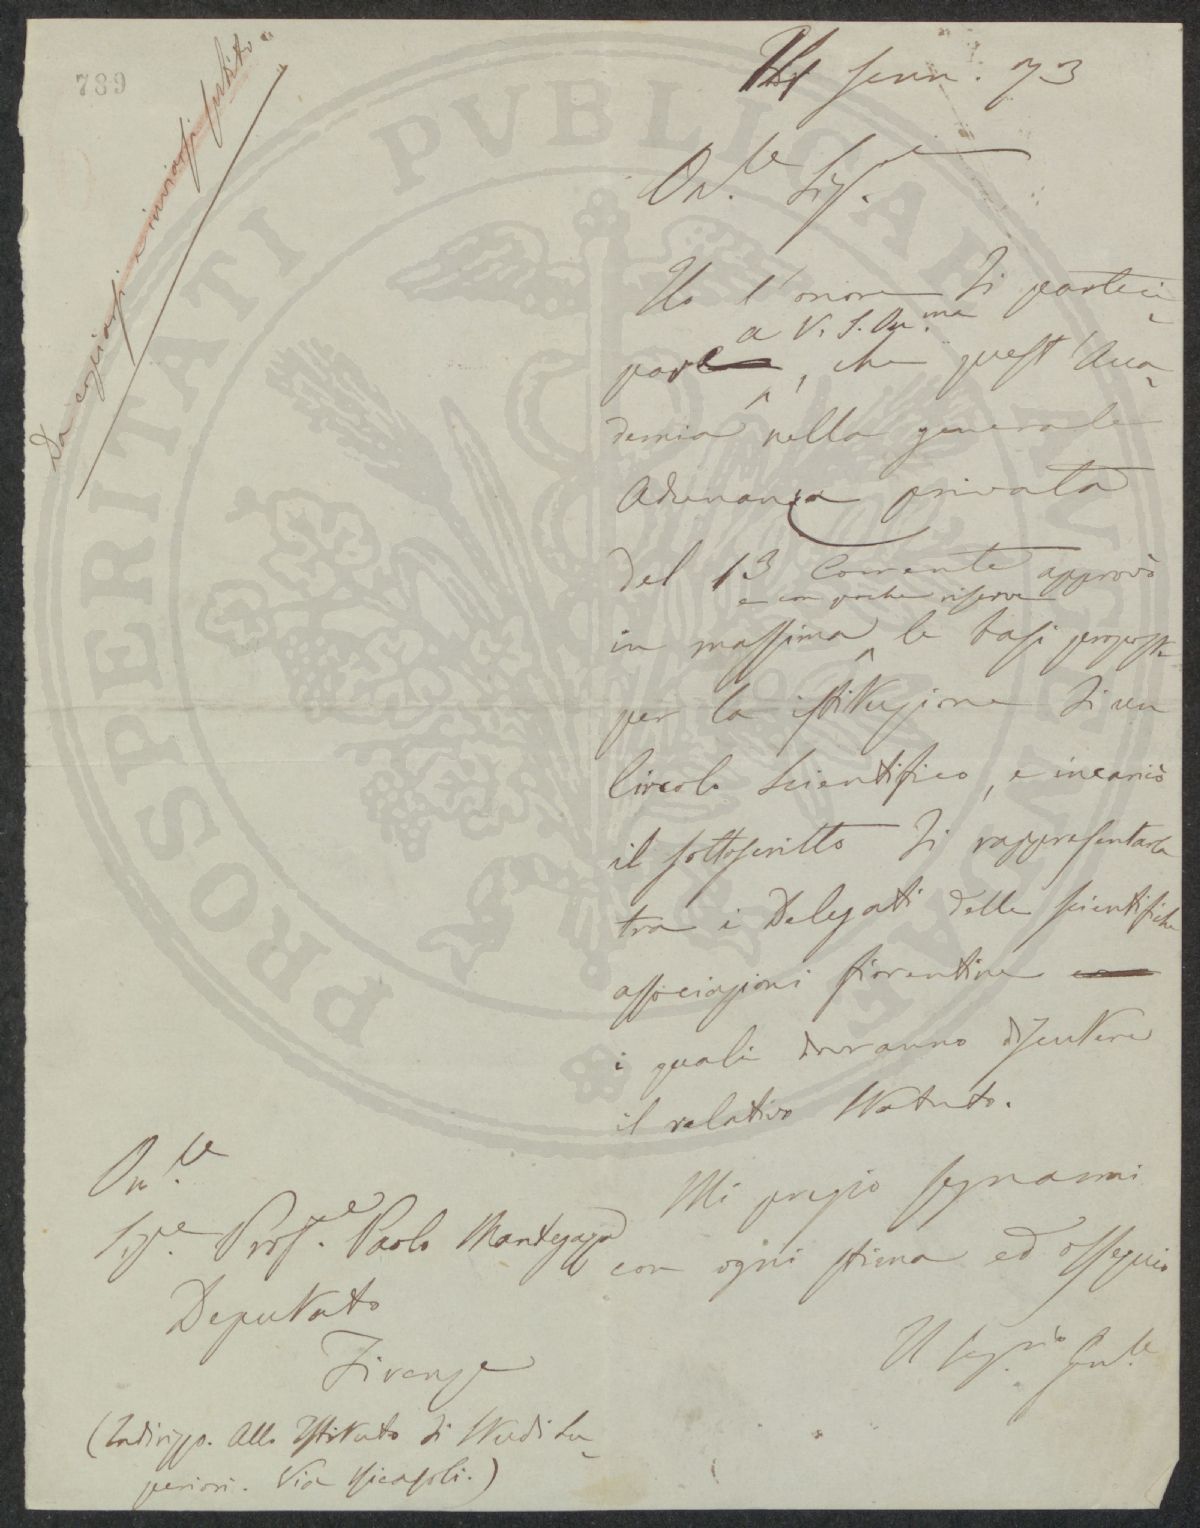 789
Da copiarsi e inviarsi subito
Genn. 73
On.le Sig.re
Ho l'onore di parteci-
pare a V. S. On.ma, che quest'Acca-
demia nella generale
Adunanza privata
del 13 Corrente approvò
in massima e con poche riserve le basi proposte
per la istituzione di un
Circolo Scientifico, e incaricò
il sottoscritto di rappresentarla
tra i Delegati delle scientifiche
associazioni fiorentine
i quali dovranno discutere
il relativo Statuto.
Mi pregio segnarmi
con ogni stima ed ossequio
Il Seg.rio Gen.le
On.le
Sig.re Prof.re Paolo Mantegazza
Deputato
Firenze
(Indirizzo. Allo Istituto di Studi Su-
periori. Via Ricasoli.)
PROSPERITATI PVBLICAE AVGENDAE